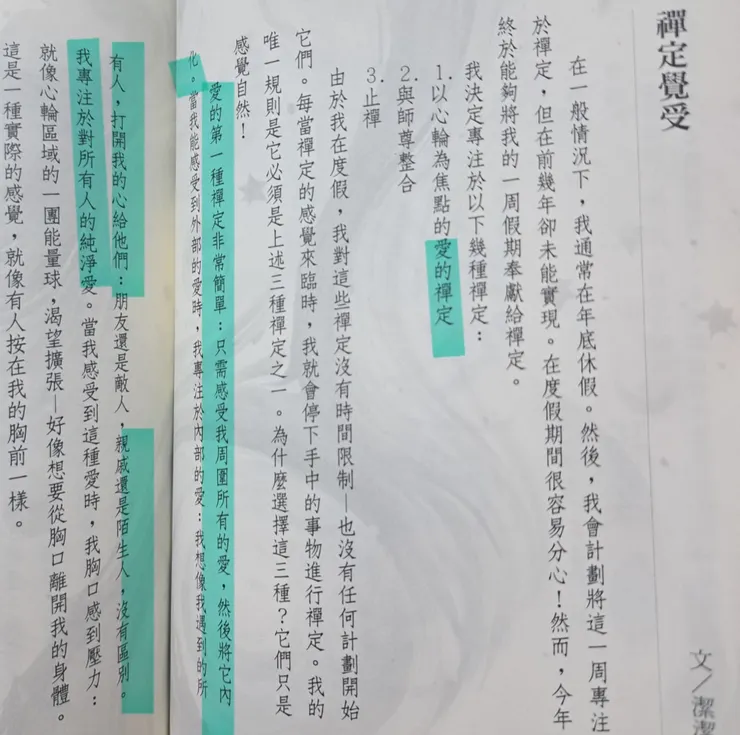 禪定覺受
文／潔潔
在一般情況下，我通常在年底休假。然後，我會計劃將這一周專注
於禪定，但在前幾年卻未能實現。在度假期間很容易分心！然而，今年
終於能夠將我的一周假期奉獻給禪定。
我決定專注於以下幾種禪定：
1.以心輪為焦點的愛的禪定
2.與師尊整合
3.止禪
由於我在度假，我對這些禪定沒有時間限制—也沒有任何計劃開始
它們。每當禪定的感覺來臨時，我就會停下手中的事物進行禪定。我的
唯一規則是它必須是上述三種禪定之一。為什麼選擇這三種？它們只是
感覺自然！
愛的第一種禪定非常簡單：只需感受我周圍所有的愛，然後將它內
化。當我能感受到外部的愛時，我專注於內部的愛：我想像我遇到的所
有人，打開我的心給他們：朋友還是敵人，親戚還是陌生人，沒有區別。
我專注於對所有人的純淨愛。當我感受到這種愛時，我胸口感到壓力：
就像心輪區域的一團能量球，渴望擴張—好像想要從胸口離開我的身體。
這是一種實際的感覺，就像有人按在我的胸前一樣。